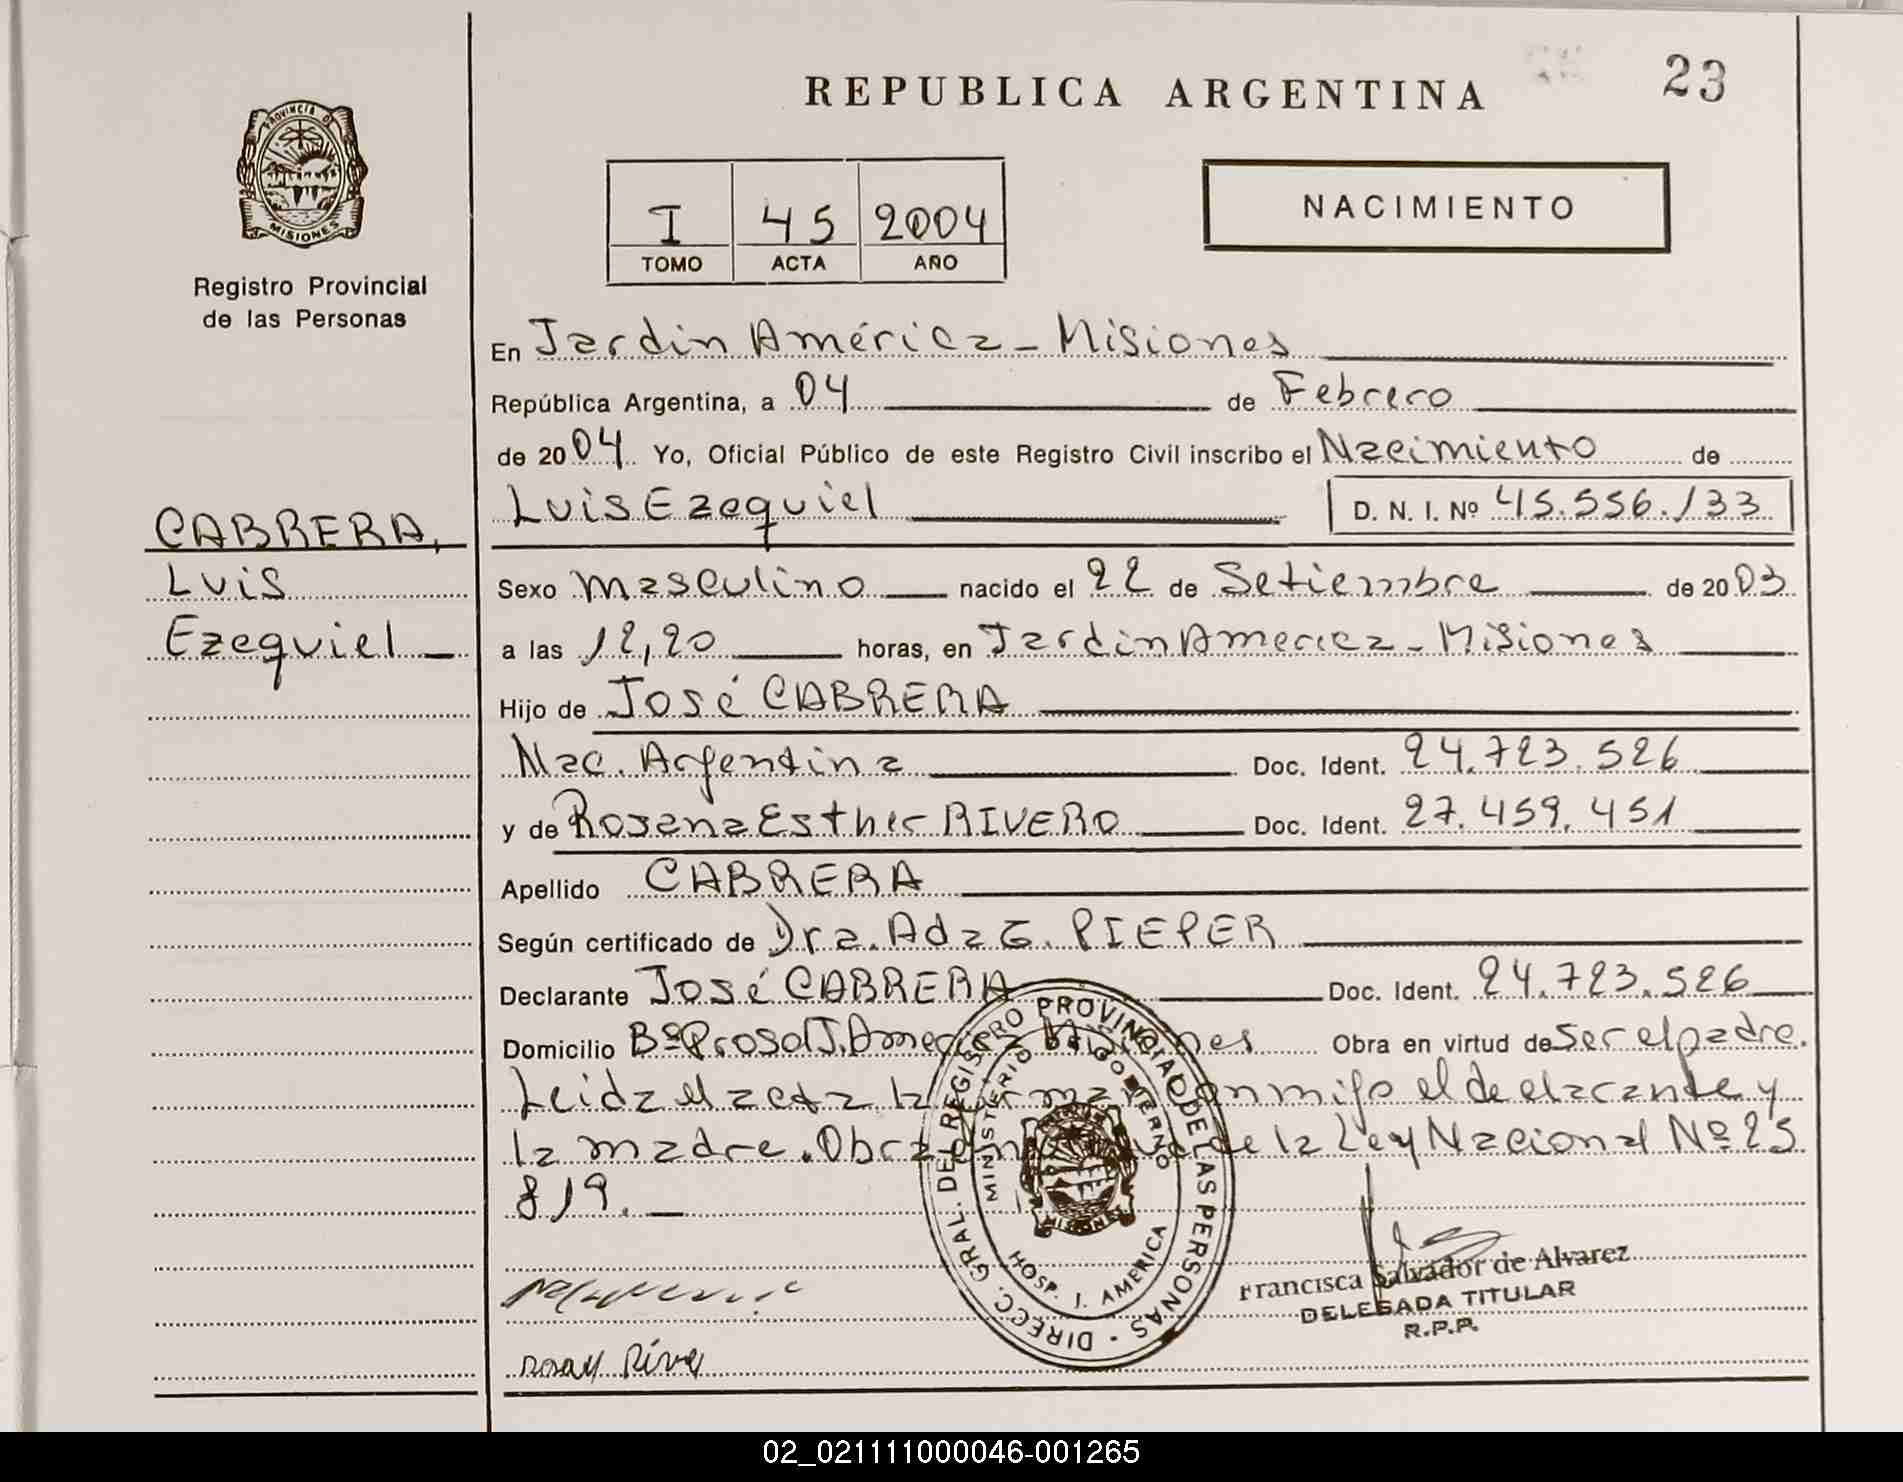 REPUBLICA ARGENTINA
23
PROVINCIA DE
MISIONES
Registro Provincial
de las Personas
I 45 2004
TOMO ACTA AÑO
NACIMIENTO
En Jardin América - Misiones
República Argentina, a 04 de Febrero
de 2004 Yo, Oficial Público de este Registro Civil inscribo el Nacimiento de
Luis Ezequiel D. N. I. Nº 45.556.133
CABRERA,
Luis
Ezequiel
Sexo Masculino nacido el 22 de Setiembre de 2003
a las 12,20 horas, en Jardin America - Misiones
Hijo de José CABRERA
Nac. Argentina Doc. Ident. 24.723.526
y de Rosana Esther RIVERO Doc. Ident. 27.459.451
Apellido CABRERA
Según certificado de Dra. Ada G. PIEPER
Declarante José CABRERA Doc. Ident. 24.723.526
Domicilio Bº Prosol J. America Misiones Obra en virtud de ser el padre.
Leida el acta la firma conmigo el declarante y
la madre. Obra en de la Ley Nacional Nº 25
819.
DIRECC. GRAL. DEL REGISTRO PROVINCIAL DE LAS PERSONAS
MINISTERIO DE GOBIERNO
MISIONES
HOSP. J. AMERICA
Francisca Salvador de Alvarez
DELEGADA TITULAR
R.P.P.
02_021111000046-001265